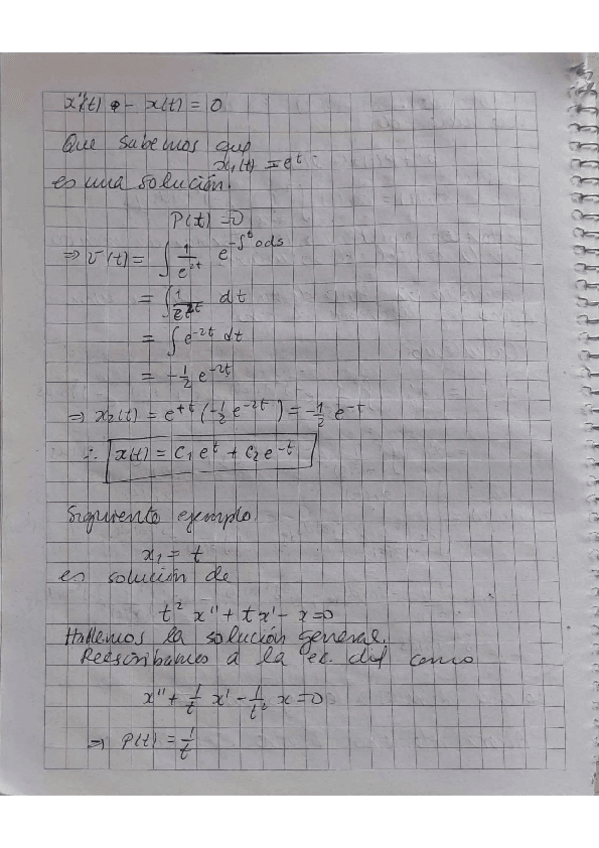 x''(t) - x(t) = 0
Que sabemos que
x₁(t) = eᵗ
es una solución.
P(t) = 0
⇒ v(t) = ∫ 1/e²ᵗ e^(-∫ᵗ 0ds)
= ∫ 1/e²ᵗ dt
= ∫ e⁻²ᵗ dt
= -1/2 e⁻²ᵗ
⇒ x₂(t) = e⁺ᵗ (-1/2 e⁻²ᵗ) = -1/2 e⁻ᵗ
∴ x(t) = C₁ eᵗ + C₂ e⁻ᵗ
Siguiente ejemplo
x₁ = t
es solución de
t² x'' + t x' - x = 0
Hallemos la solución general.
Reescribamos a la ec. dif como
x'' + 1/t x' - 1/t² x = 0
⇒ P(t) = 1/t